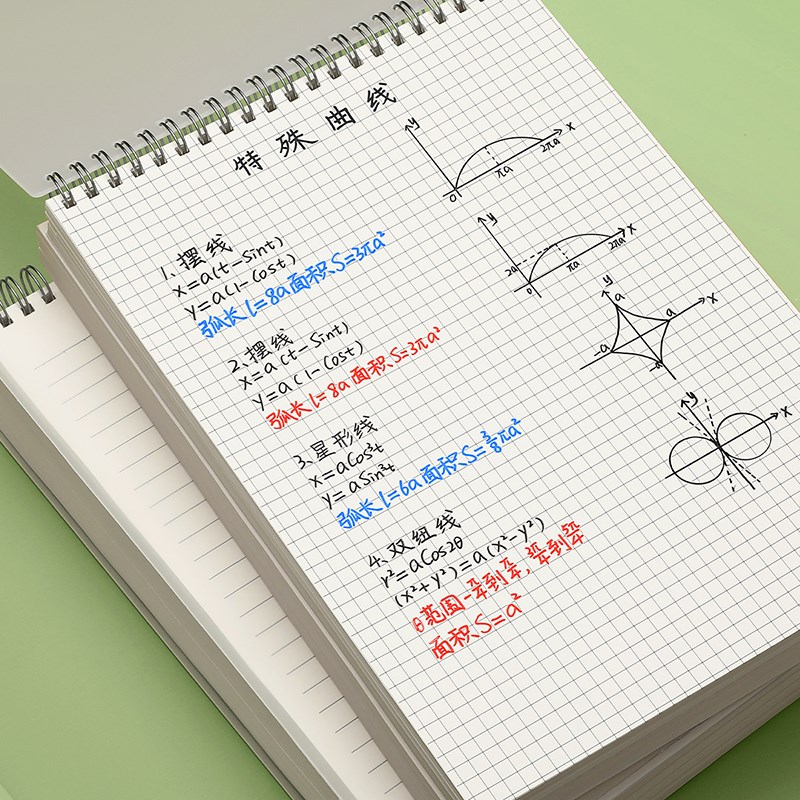 特殊曲线
1、摆线
x=a(t-Sint)
y=a(1-Cost)
弧长l=8a面积S=3πa²
2、摆线
x=a(t-Sint)
y=a(1-Cost)
弧长l=8a面积S=3πa²
3、星形线
x=aCos³t
y=aSin³t
弧长l=6a面积S=3/8πa²
4、双纽线
r²=aCos2θ
(x²+y²)=a(x²-y²)
θ范围-π/4到π/4,3π/4到5π/4
面积S=a²
y
x
0
πa
2πa
y
x
2a
0
πa
2πa
y
x
a
a
-a
-a
y
x